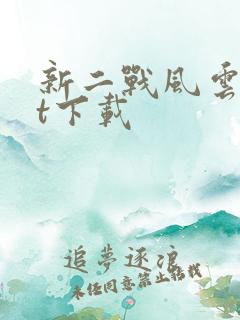 新二戰風雲
t下載
追夢逐浪
未经同意禁止转载